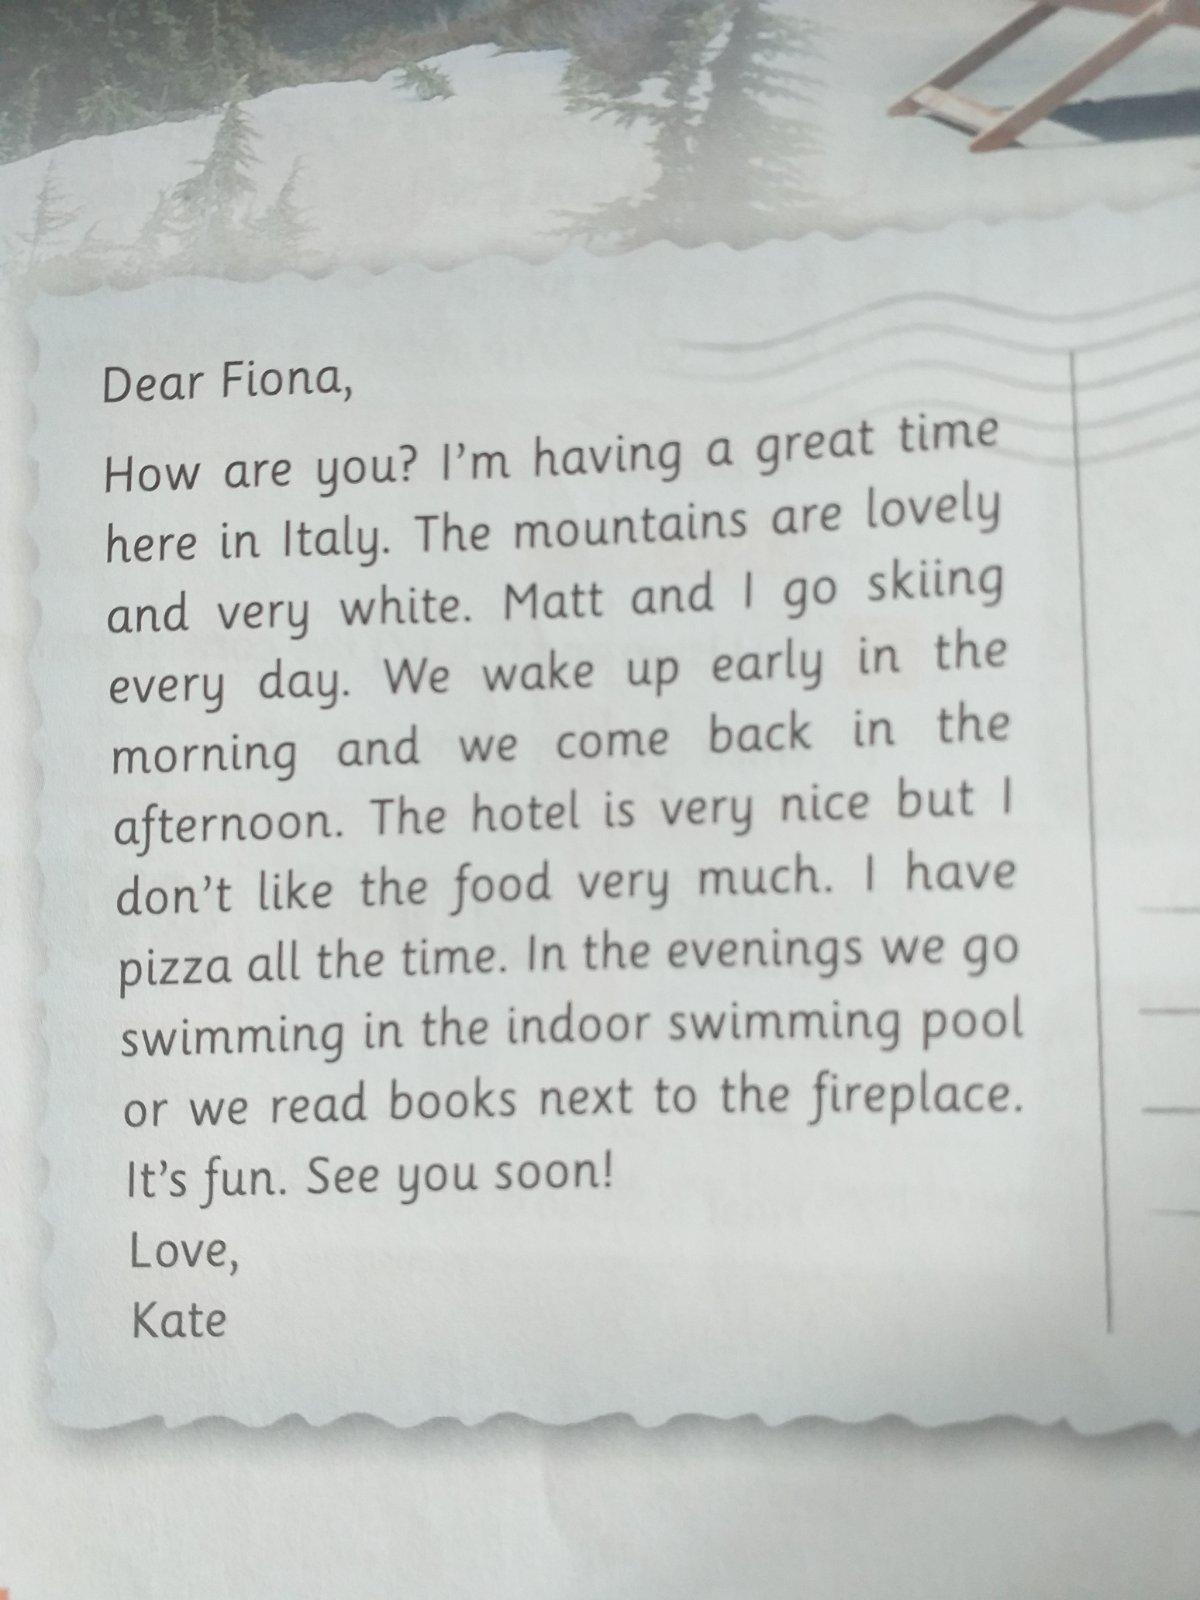 Dear Fiona,
How are you? I'm having a great time
here in Italy. The mountains are lovely
and very white. Matt and I go skiing
every day. We wake up early in the
morning and we come back in the
afternoon. The hotel is very nice but I
don't like the food very much. I have
pizza all the time. In the evenings we go
swimming in the indoor swimming pool
or we read books next to the fireplace.
It's fun. See you soon!
Love,
Kate